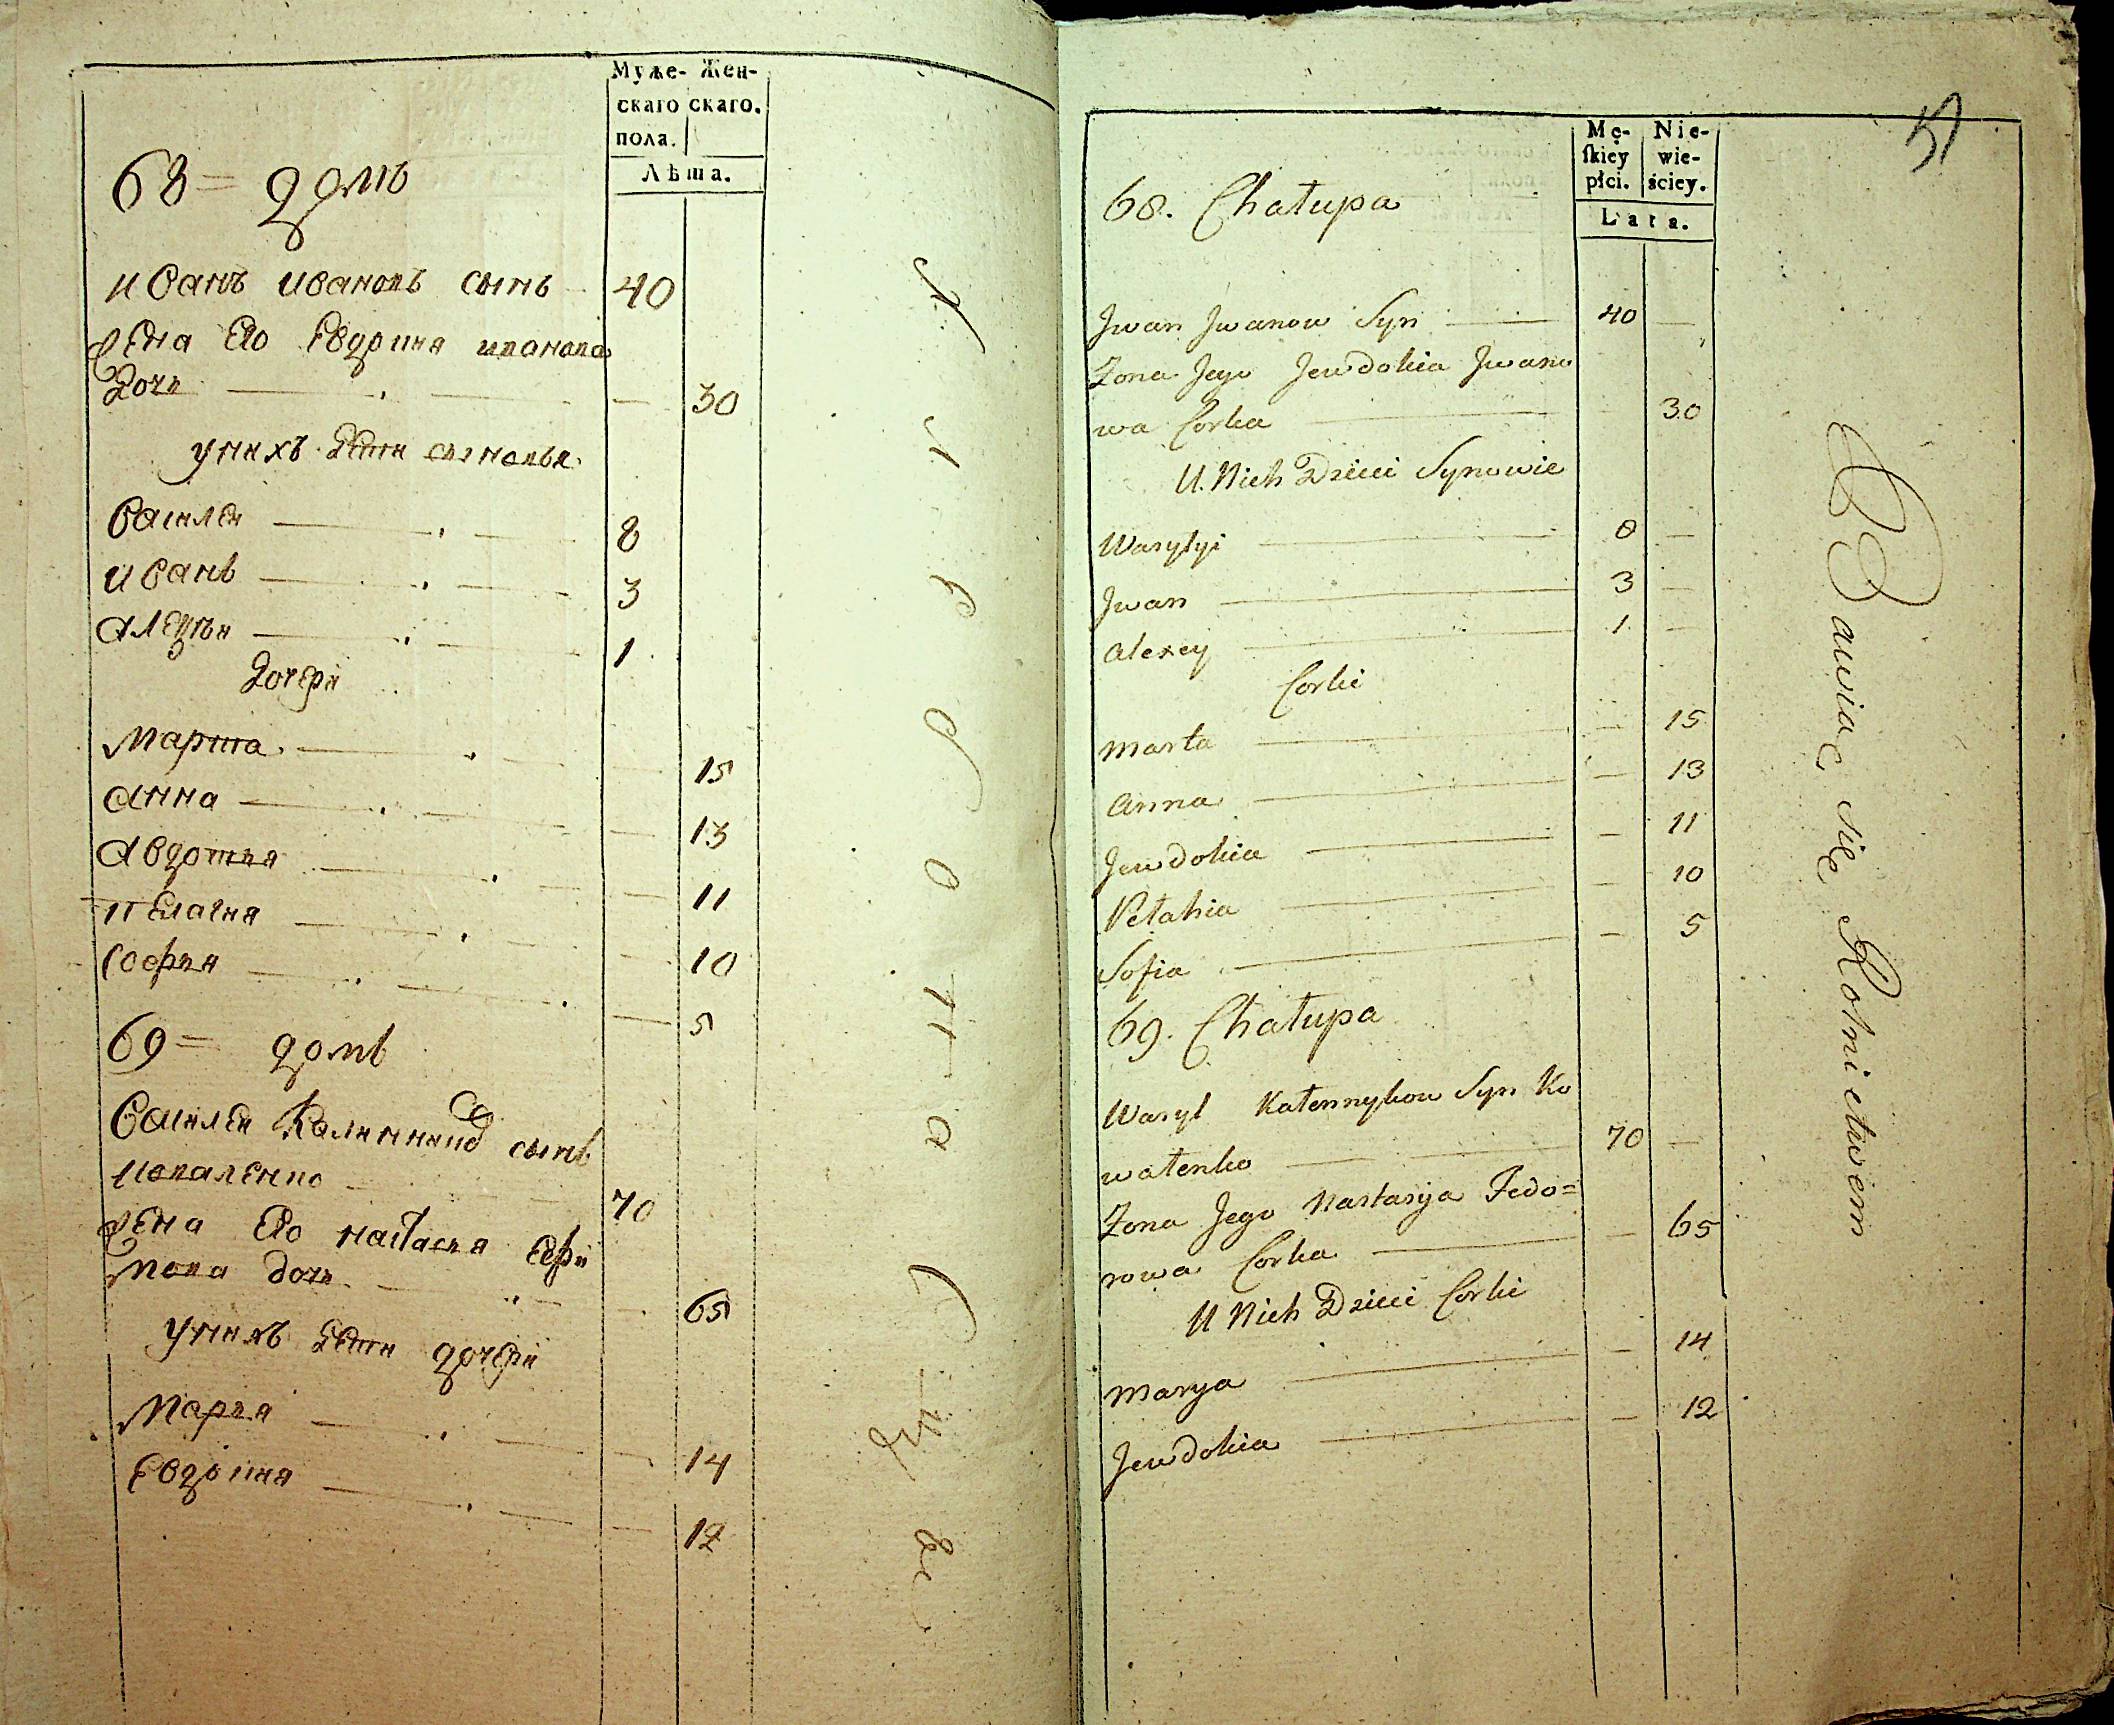 Муже- Жен-
скаго скаго.
пола.
Лѣта.
68 = домъ
иванъ ивановъ сынъ 40
жена его Евдокия иванова
дочь 30
у нихъ дети сыновья
василеи 8
иванъ 3
алецѣи 1
дочери
марта 15
анна 13
авдотья 11
пелагия 10
софья 5
69 = домъ
василеи сынъ
коваленко 70
жена его настасья
дочь 65
у нихъ дети дочери
марья 14
Евдокия 12
51
Mę- Nie-
skiey wie-
płci. ściey.
Lata.
68. Chałupa
Jwan Jwanow Syn 40
Zona Jego Jewdokia Jwano
wa Corka 30
U Nich Dzieci Synowie
Wasylyi 8
Jwan 3
Alexey 1
Corki
Marta 15
Anna 13
Jewdokia 11
Pełahia 10
Sofia 5
69. Chałupa
Wasyl Syn Ko
wałenko 70
Zona Jego Nastasija Fedo=
rowa Corka 65
U Nich Dzieci Corki
Marya 14
Jewdokia 12
Bawiąc się Rolnictwem